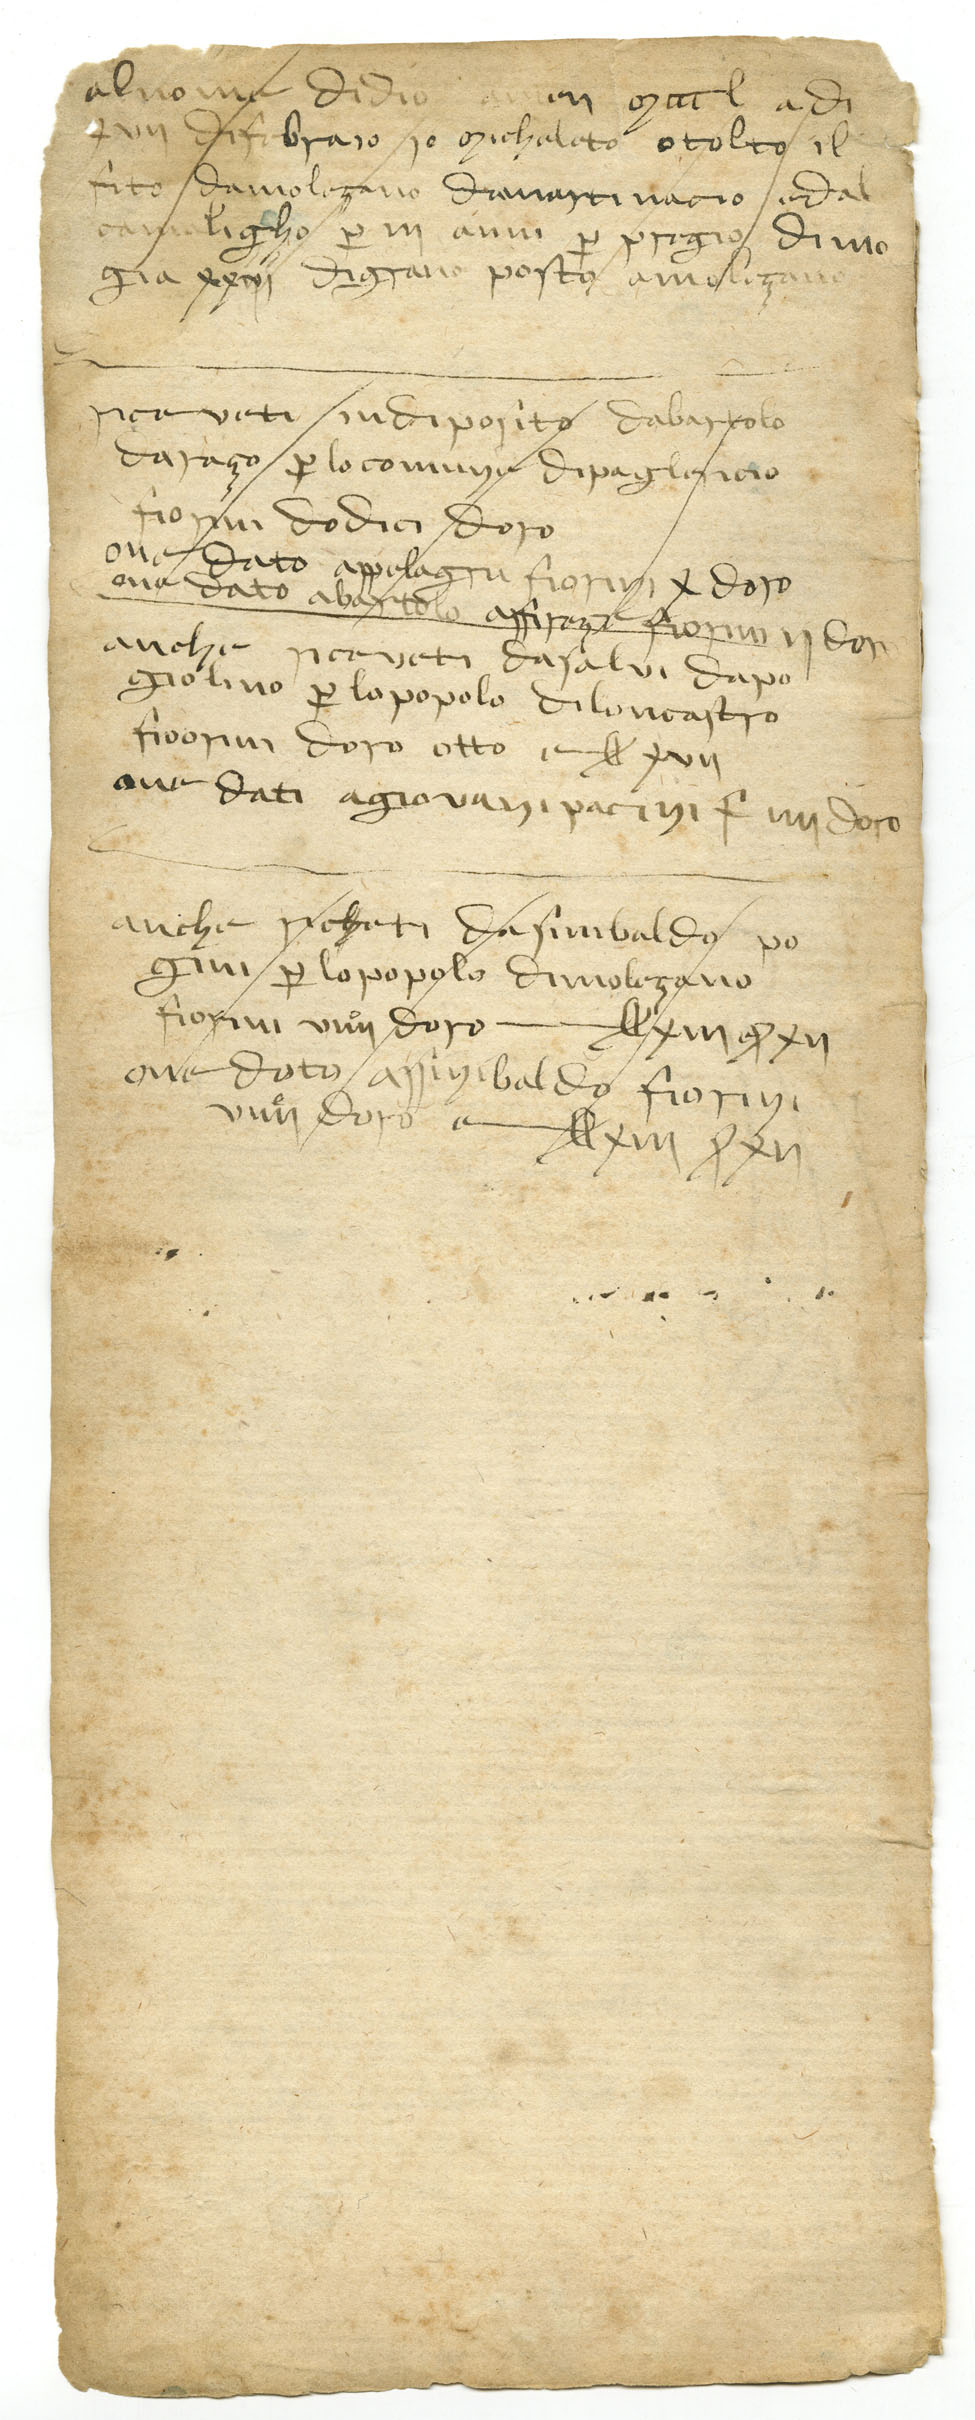 al nome didio amen mcccl adi
xvii difebraio io micheleto otolto il
fito damolezano damartinacio edal
camaligho per iii anni per pregio dimo
gia digrano posto amolezano
riceveti indiposito dabartolo
darazo per locomune dipaglericio
fiorini dodici doro
one dato appelagru fiorini x doro
one dato abartolo affireze fiorini ii doro
anche riceveti dasalvi dapo
giolino per lopopolo diloncastro
fioorini doro otto e xvii
one dati agiovanipacini f iiii doro
anche richeti dasinibaldo po
gini per lopopolo dimolezano
fiorini viiii doro xiii xii
one doto assinibaldo fiorini
viiii doro e xiii xii